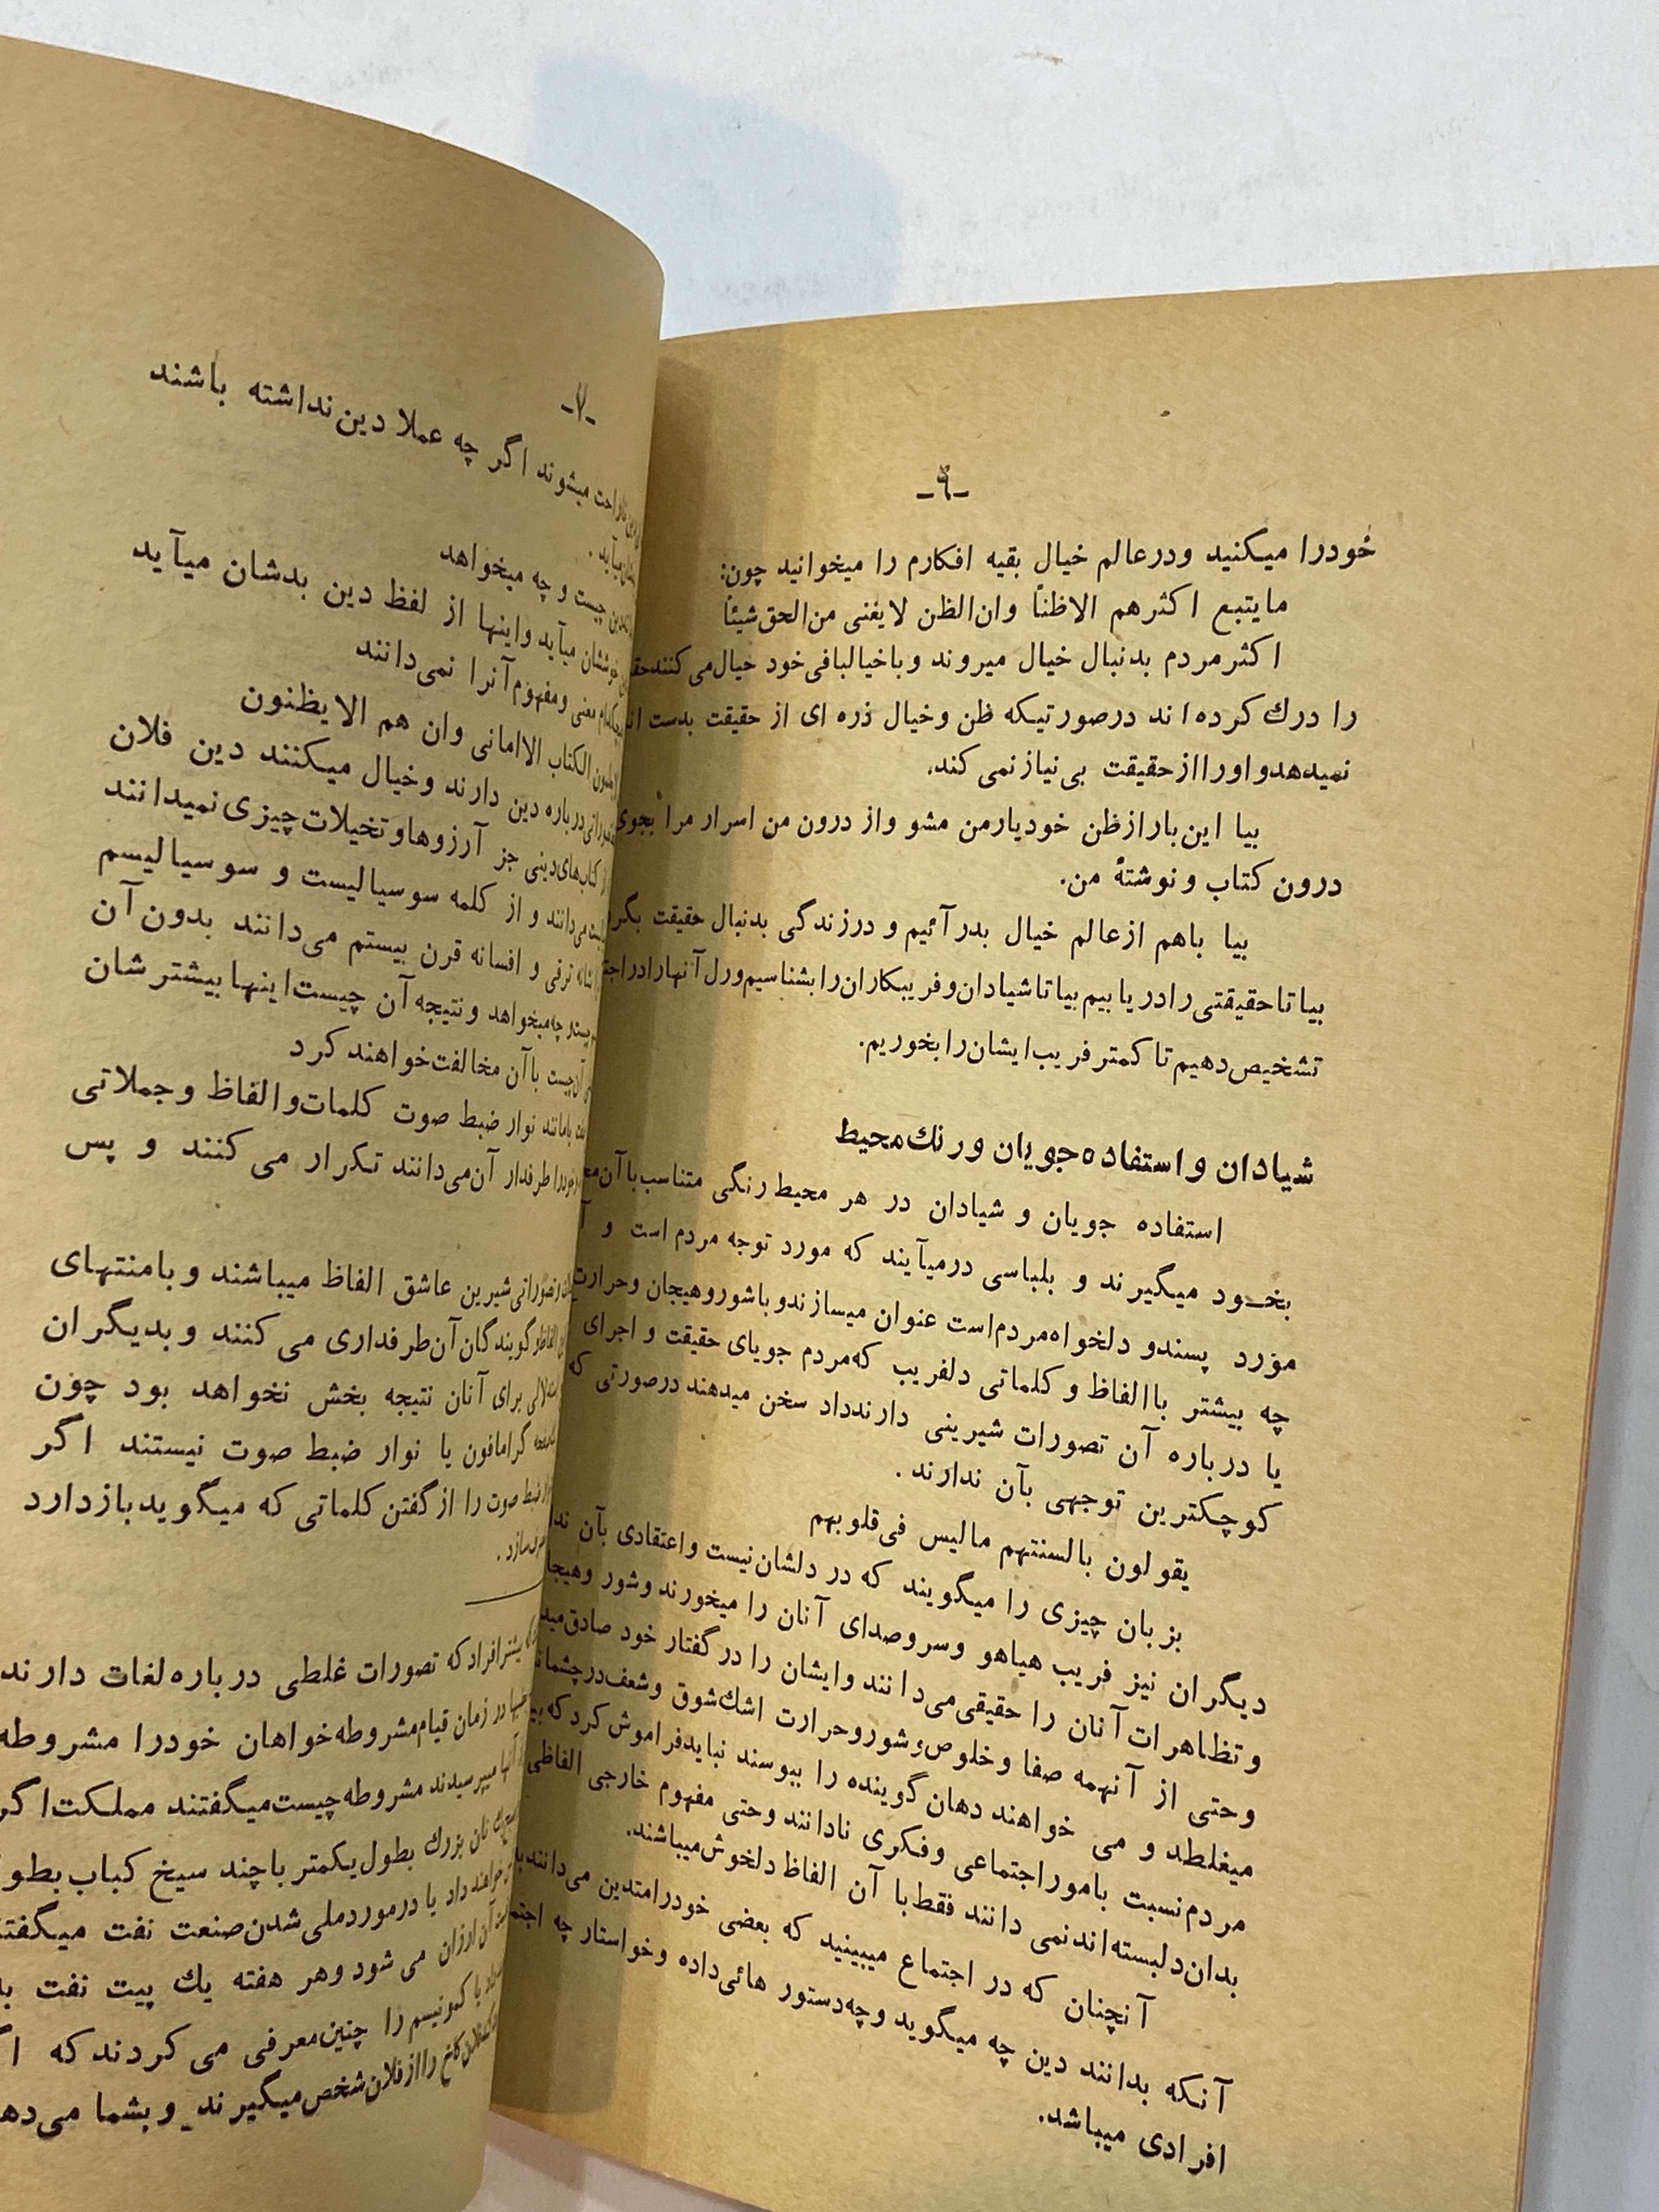 -۶-
خودرا میکنید ودرعالم خیال بقیه افکارم را میخوانید چون:
مایتبع اکثرهم الاظناً وان‌الظن لایغنی من‌الحق‌شیئاً
اکثرمردم بدنبال خیال میروند وباخیالبافی‌خود خیال‌می‌کنند
را درك کرده‌اند درصورتیکه ظن وخیال ذره‌ای از حقیقت بدست
نمیدهدواورا ازحقیقت بی‌نیازنمی‌کند.
بیا این‌بارازظن خودیارمن مشو واز درون من اسرار مرا بجوی
درون کتاب و نوشتهٔ من.
بیا باهم ازعالم خیال بدرآئیم و درزندگی بدنبال حقیقت
بیا تاحقیقتی‌رادریابیم‌بیا تاشیادان‌وفریبکاران‌را بشناسیم‌ورل آنهارادر
تشخیص‌دهیم تا کمتر فریب‌ایشان‌رابخوریم.
شیادان واستفاده‌جویان ورنك‌محیط
استفاده جویان و شیادان در هر محیط رنگی متناسب‌باآن
بخـود میگیرند و بلباسی درمیآیند که مورد توجه مردم است و
مورد پسندو دلخواه‌مردم‌است عنوان میسازندو باشوروهیجان وحرارت
چه بیشتر باالفاظ و کلماتی دلفریب که‌مردم جویای حقیقت و اجرای
یا درباره آن تصورات شیرینی دارندداد سخن میدهند درصورتی که
کوچکترین توجهی بآن ندارند.
یقولون بالسنتهم مالیس فی‌قلوبهم
بزبان چیزی را میگویند که در دلشان‌نیست واعتقادی بآن
دیگران نیز فریب هیاهو وسروصدای آنان را میخورند وشور
وتظاهرات آنان را حقیقی‌می‌دانند وایشان را در گفتار خود صادق
وحتی از آنهمه صفا وخلوص‌وشوروحرارت اشك‌شوق وشعف
میغلطد و می خواهند دهان گوینده را ببوسند نبایدفراموش کرد که
مردم نسبت بامور اجتماعی وفکری نادانند وحتی مفهوم خارجی الفاظی
بدان‌دلبسته‌اندنمی دانند فقط با آن الفاظ دلخوش‌میباشند.
آنچنان که در اجتماع میبینید که بعضی خودرامتدین می‌دانند
آنکه بدانند دین چه میگوید وچه‌دستور هائی‌داده وخواستار چه
افرادی میباشد.
-۷-
ناراحت میشوند اگر چه عملا دین نداشته باشند
دین چیست و چه میخواهد
خوششان میآید واینها از لفظ دین بدشان میآید
معنی ومفهوم آنرا نمی‌دانند
الکتاب الاامانی وان هم الایظنون
درباره دین دارند وخیال میکنند دین فلان
کتاب‌های‌دینی جز آرزوهاوتخیلات‌چیزی‌نمیدانند
می‌دانند و از کلمه سوسیالیست و سوسیالیسم
ترقی و افسانه قرن بیستم می‌دانند بدون آن
چه‌میخواهد ونتیجه آن چیست‌اینها بیشترشان
چیست باآن مخالفت‌خواهند کرد
مانند نوار ضبط صوت کلمات‌والفاظ وجملاتی
طرفدار آن‌می‌دانند تکرار می کنند و پس
شیرین عاشق الفاظ میباشند وبامنتهای
گویندگان آن‌طرفداری می کنند وبدیگران
برای آنان نتیجه بخش نخواهد بود چون
گرامافون یا نوار ضبط صوت نیستند اگر
ضبط صوت را از گفتن کلماتی که میگوید بازدارد
بیشتر افراد که تصورات غلطی درباره لغات دارند
در زمان قیام‌مشروطه‌خواهان خودرا مشروطه
میپرسیدند مشروطه‌چیست‌میگفتند مملکت‌اگر
نان بزرك بطول یکمتر باچند سیخ کباب
خواهند داد یا درموردملی شدن‌صنعت نفت
ارزان می شود وهر هفته یك پیت نفت
یا کمونیسم را چنین‌معرفی می کردند که
کاخ رااز فلان‌شخص‌میگیرند وبشما